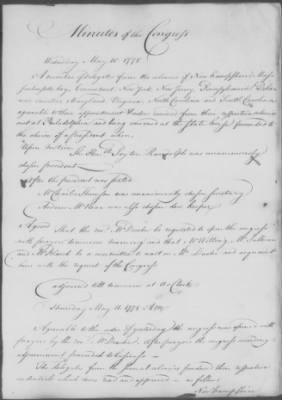 Minutes of the Congress
Wednesday May 10 1775
A number of Delegates from the colonies of New Hampshire Massa
chusetts bay, Connecticut, New York, New Jersey, Pennsylvania, Delaw
are counties, Maryland, Virginia, North Carolina and South Carolina
agreeable to their appointment orders received from their respective colonies
met at Philadelphia and being convened at the State house proceeded to
the choice of a president when
Upon motion The Honble Peyton Randolph was unanimously
chosen president
After the president was seated
Mr Charles Thomson was unanimously chosen secretary
Andrew McNeare was also chosen door keeper
Agreed That the revd Mr Duché be requested to open the congress
with prayers tomorrow morning and that Mr Willing Mr Sullivan
and Mr Bland be a committee to wait on Mr Duché and acquaint
him with the request of the Congress
adjourned till tomorrow at 10 oClock
Thursday May 11 1775 A.M.
Agreeable to the order of yesterday the congress was opened with
prayers by the revd Mr Duché. After prayers the congress
proceeded to business
The delegates from the several colonies produced their respective
credentials which were read and approved as follows
New Hampshire